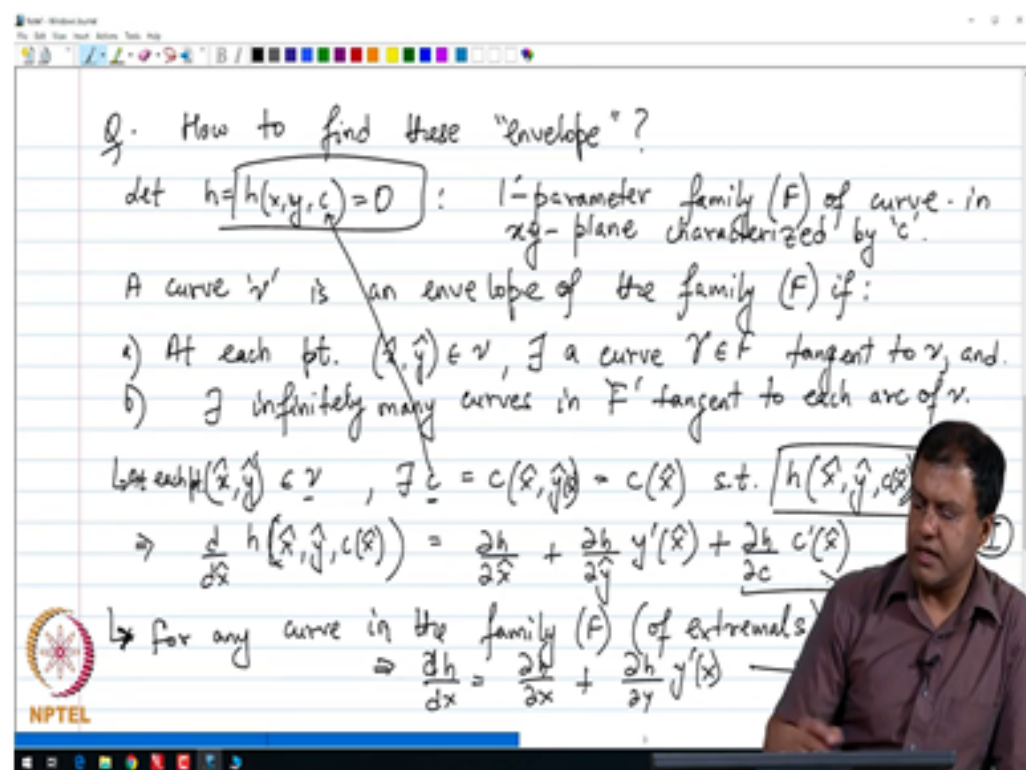 Q. How to find these "envelope"?
Let h = h(x,y,c) = 0 : 1-parameter family (F) of curve in
xy-plane characterized by 'c'.
A curve 'ν' is an envelope of the family (F) if:
a) At each pt. (x̂, ŷ) ∈ ν, ∃ a curve γ ∈ F tangent to ν, and.
b) ∃ infinitely many curves in 'F' tangent to each arc of ν.
↳ At each pt (x̂, ŷ) ∈ ν, ∃ c = c(x̂, ŷ(x̂)) = c(x̂) s.t. h(x̂, ŷ, c(x̂)
⇒ d/dx̂ h(x̂, ŷ, c(x̂)) = ∂h/∂x̂ + ∂h/∂ŷ y'(x̂) + ∂h/∂c c'(x̂) I
↳ For any curve in the family (F) (of extremals)
⇒ dh/dx = ∂h/∂x + ∂h/∂y y'(x)
NPTEL